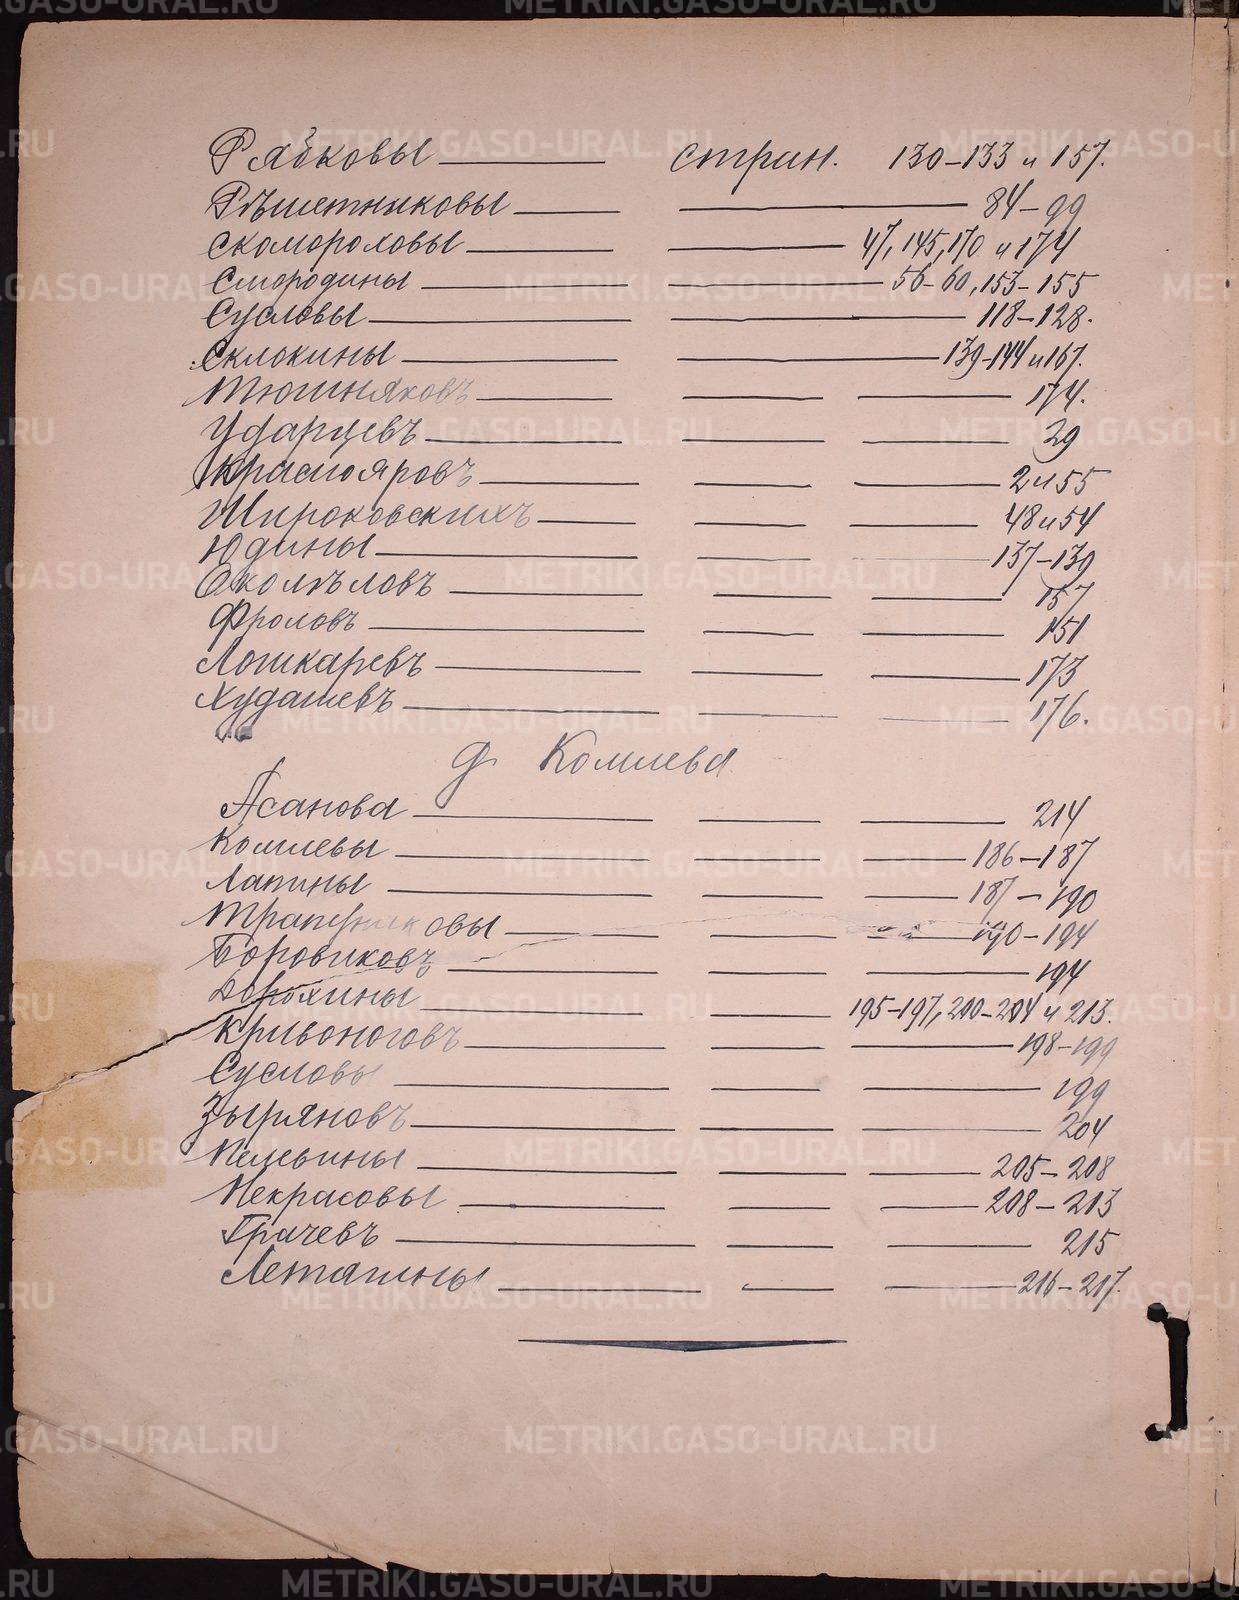 Рябковы стран. 130-133 и 157.
Рѣшетниковы 84-99
Скомороховы 47, 145, 170 и 174
Смородины 56-60, 153-155
Сусловы 118-128.
Склокины 139-144 и 167.
Тюшняковъ 174.
Ударцевъ 29
Краснояровъ 2 и 55
Широковскихъ 48 и 54
Юдины 137-139
Околѣловъ 157
Фроловъ 151
Лошкаревъ 173
Худашевъ 176.
д. Комлева
Асанова 214
Комлевы 186-187
Лапины 187-190
Трапезниковы 190-194
Боровиковъ 194
Дорохины 195-197, 200-204 и 213.
Кривоноговъ 198-199
Сусловы 199
Зыряновъ 204
Пелевины 205-208
Некрасовы 208-213
Грачевъ 215
Леташны 216-217.
METRIKI.GASO-URAL.RU